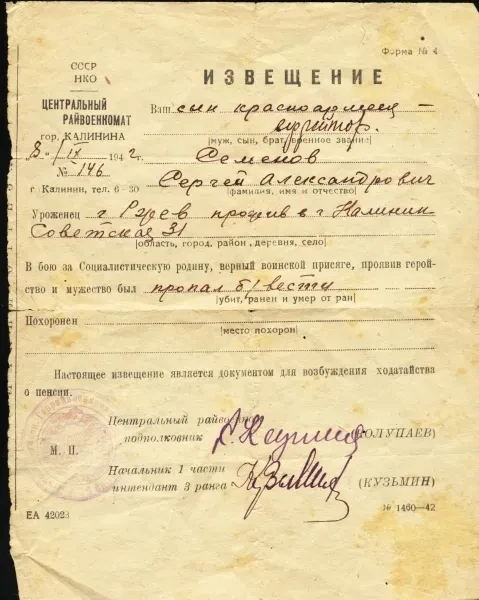 Форма № 4
СССР
НКО
ЦЕНТРАЛЬНЫЙ
РАЙВОЕНКОМАТ
гор. КАЛИНИНА
8/IX 1942 г.
№ 146
г Калинин, тел. 6-30
ИЗВЕЩЕНИЕ
Ваш сын красноармеец -
ефрейтор.
(муж, сын, брат, военное звание)
Семенов
Сергей Александрович
(фамилия, имя и отчество)
Уроженец г Ржев прожив в г Калинин
Советская 31
(область, город, район, деревня, село)
В бою за Социалистическую родину, верный воинской присяге, проявив герой-
ство и мужество был пропал б/вести
(убит, ранен и умер от ран)
Похоронен
(место похорон)
Настоящее извещение является документом для возбуждения ходатайства
о пенсии.
М. П.
Центральный райвоенком
подполковник (ГОЛУПАЕВ)
Начальник 1 части
интендант 3 ранга (КУЗЬМИН)
ЕА 42023
№ 1460—42